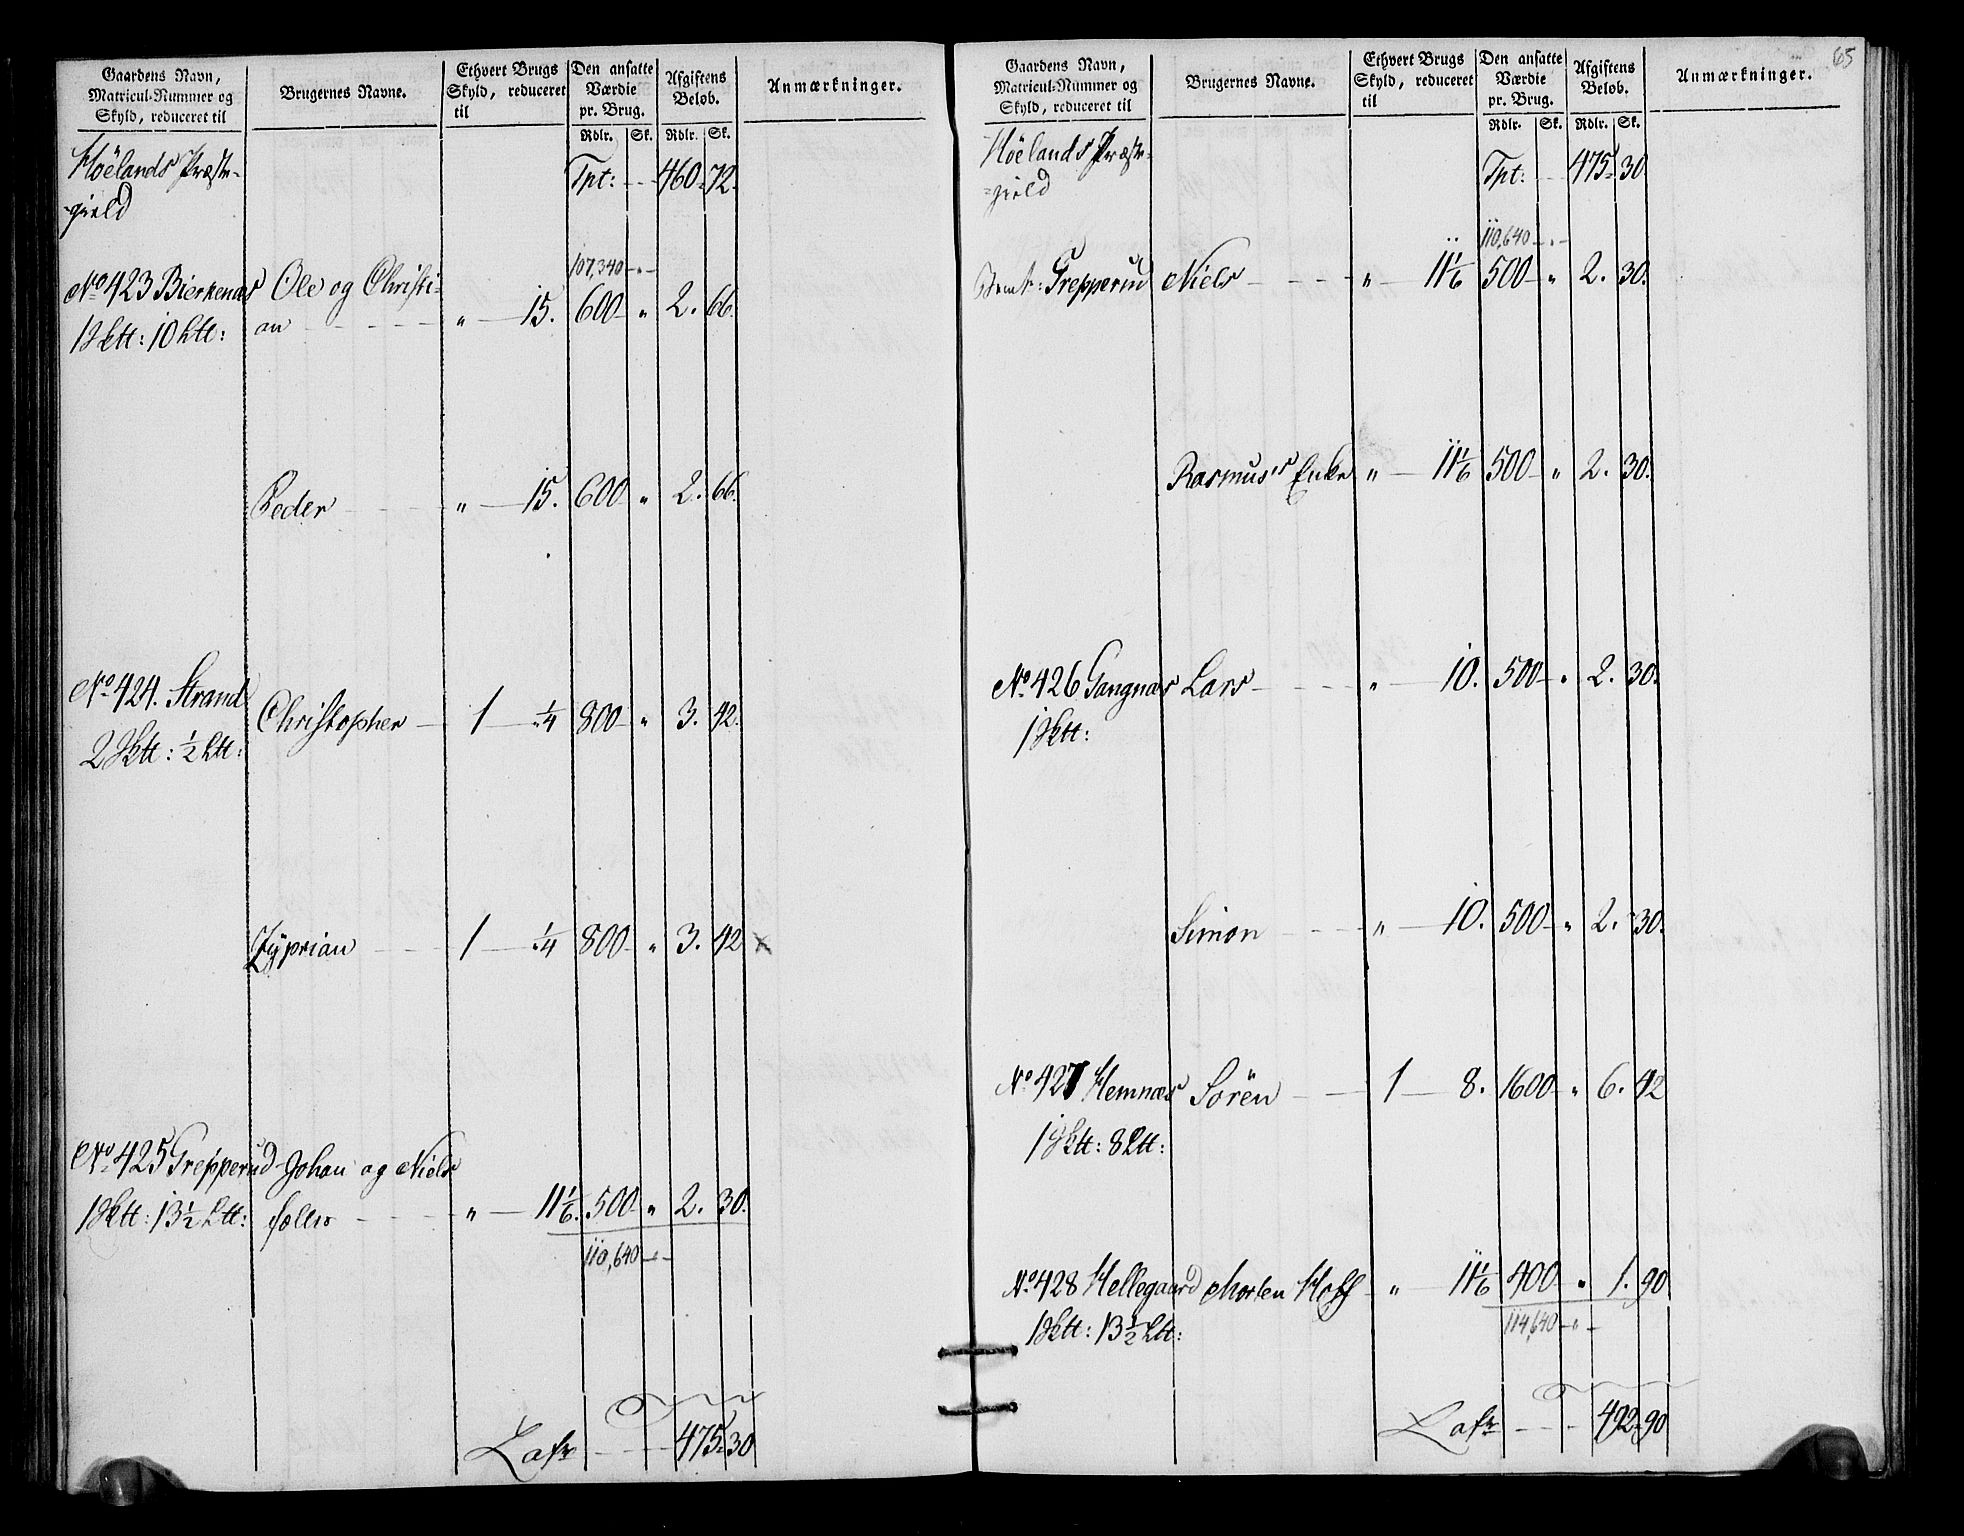 Gaardens Navn, Matricul-Nummer og Skyld, reduceret til | Brugernes Navne. | Ethvert Brugs Skyld, reduceret til | Den ansatte Værdie pr. Brug. Rdlr. Sk. | Afgiftens Beløb. Rdlr. Sk. | Anmærkninger.
Höelands Præste- Tpt: - - 460 - 72.
gield
107,340 - " -
No 423 Bierkenæs Ole og Christi-
1 Sktt: 10 Ltt: an - - - - " - 15. 600 - " 2. 66.
Peder - - - " - 15. 600 - " 2. 66.
No 424. Strand Christopher - 1 - " 1/4 800 - " 3. 42.
2 Sktt: 1/2 Ltt:
Zÿprian - - - 1 - " 1/4 800 - " 3. 42 x
No 425 Grepperud Johan og Niels
1 Sktt: 13 1/2 Ltt: fælles - - - " - 11 1/6. 500 - " 2. 30.
110,640 - " -
Lats - - - 475 - 30
65
Gaardens Navn, Matricul-Nummer og Skyld, reduceret til | Brugernes Navne. | Ethvert Brugs Skyld, reduceret til | Den ansatte Værdie pr. Brug. Rdlr. Sk. | Afgiftens Beløb. Rdlr. Sk. | Anmærkninger.
Höelands Præste- Tpt: - - 475 - 30
-gield
110,640 - " -
Grepperud Niels - - - - " - 11 1/6 500 - " 2. 30.
Rasmus's Enke " - 11 1/6 500 - " 2. 30.
No 426 Gangnæs Lars - - - - " - 10. 500 - " 2. 30.
1 Sktt:
Simon - - - - " - 10. 500 - " 2. 30.
No 427 Hemnæs Sören - - 1 - 8. 1600 - " 6. 42
1 Sktt: 8 Ltt:
No 428 Hellegaard Morten Hoff - " - 11 1/6 400 - " 1. 90
1 Sktt: 13 1/2 Ltt: 114,640 - " -
Lats - - - 492 - 90